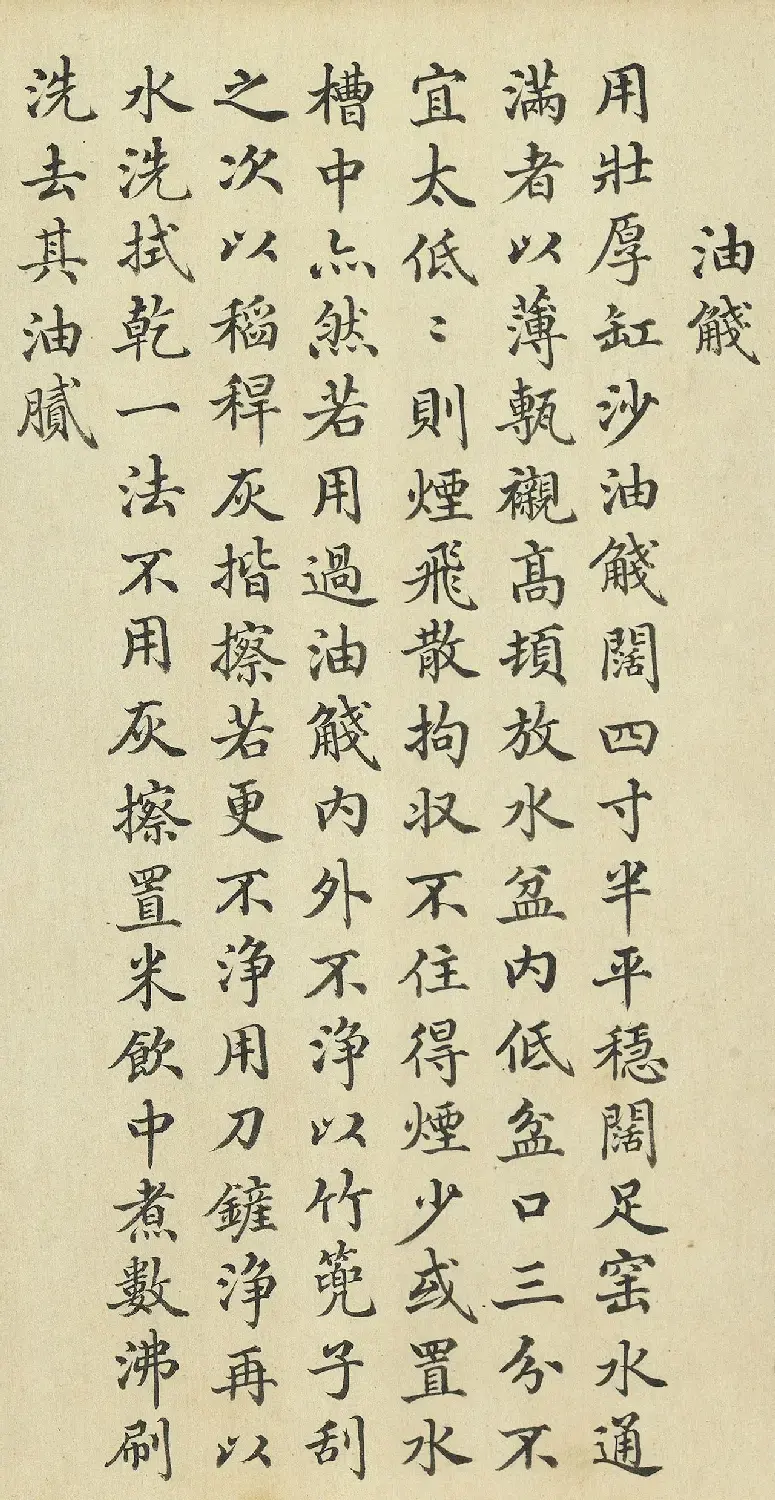 油觮
用壯厚缸沙油觮闊四寸半平穩闊足窑水通
滿者以薄甎襯高頓放水盆内低盆口三分不
宜太低〻則煙飛散拘収不住得煙少或置水
槽中亦然若用過油觮内外不浄以竹篼子刮
之次以稻稈灰揩擦若更不浄用刀鏟浄再以
水洗拭乾一法不用灰擦置米飲中煮數沸刷
洗去其油膩